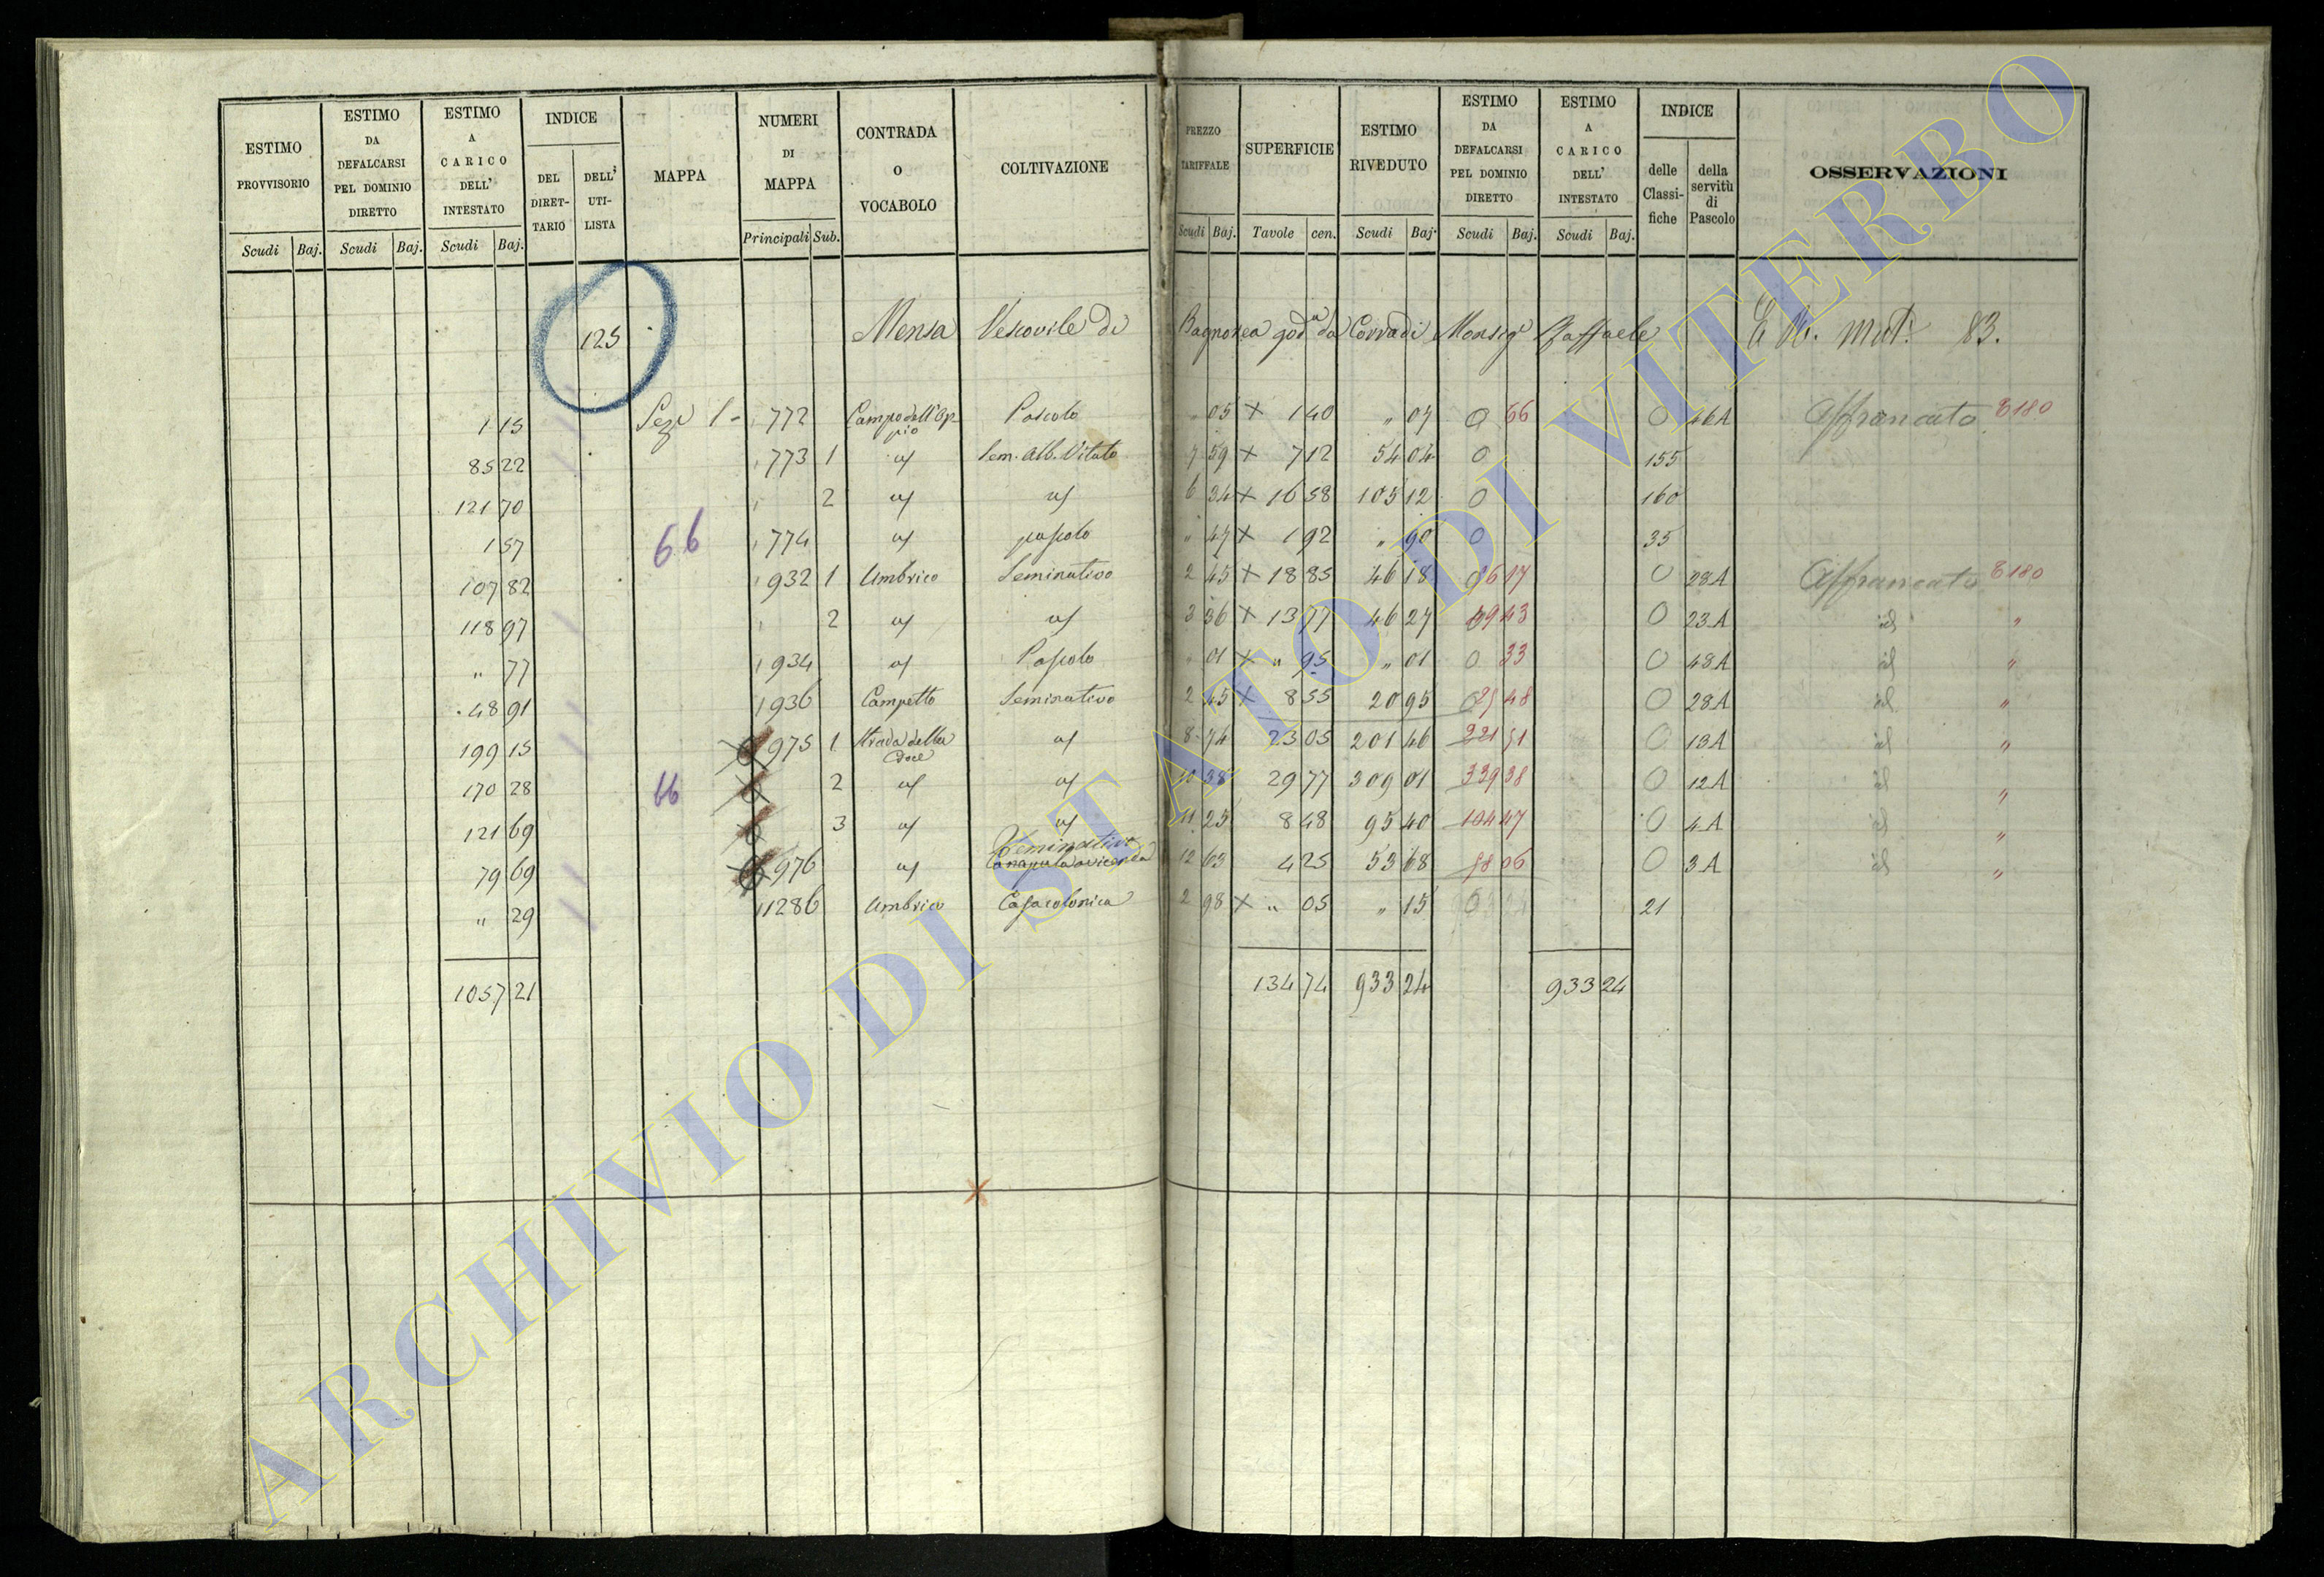 ESTIMO PROVVISORIO | ESTIMO DA DEFALCARSI PEL DOMINIO DIRETTO | ESTIMO A CARICO DELL' INTESTATO | INDICE | MAPPA | NUMERI DI MAPPA | CONTRADA O VOCABOLO | COLTIVAZIONE | PREZZO TARIFFALE | SUPERFICIE | ESTIMO RIVEDUTO | ESTIMO DA DEFALCARSI PEL DOMINIO DIRETTO | ESTIMO A CARICO DELL' INTESTATO | INDICE | OSSERVAZIONI
DEL DIRET-TARIO | DELL' UTI-LISTA | delle Classi-fiche | della servitù di Pascolo
Scudi | Baj. | Scudi | Baj. | Scudi | Baj. | Principali | Sub. | Scudi | Baj. | Tavole | cen. | Scudi | Baj. | Scudi | Baj. | Scudi | Baj.
125 Mensa Vescovile di Bagnorea god da Corradi Monsig Raffaele mut: 83.
1 15 Sez 1 772 Campo dell'Op-pio Pascolo " 05 × 1 40 " 07 0 66 0 46A Affrancato 8180
85 22 773 1 Sem. Alb. Vitato 7 59 × 7 12 54 04 0 155
121 70 2 6 34 × 16 58 105 12 0 160
1 57 66 774 pascolo " 47 × 1 92 " 90 0 35
107 82 932 1 Umbrico Seminativo 2 45 × 18 85 46 18 0 28A Affrancato 8180
118 97 2 3 36 × 13 77 46 27 43 0 23A id "
" 77 934 Pascolo " 01 × " 95 " 01 0 33 0 48A id "
48 91 936 Campetto Seminativo 2 45 × 8 55 20 95 48 0 28A id "
199 15 975 1 Strada della 8 74 23 05 201 46 221 51 0 13A id "
170 28 66 2 10 38 29 77 309 01 339 38 0 12A id "
121 69 3 11 25 8 48 95 40 104 47 0 4A id "
79 69 976 Seminativo 12 63 4 25 53 68 58 06 0 3A id "
" 29 1286 Umbrico Casa colonica 2 98 × " 05 " 15 0 21
1057 21 134 74 933 24 933 24
ARCHIVIO DI STATO DI VITERBO